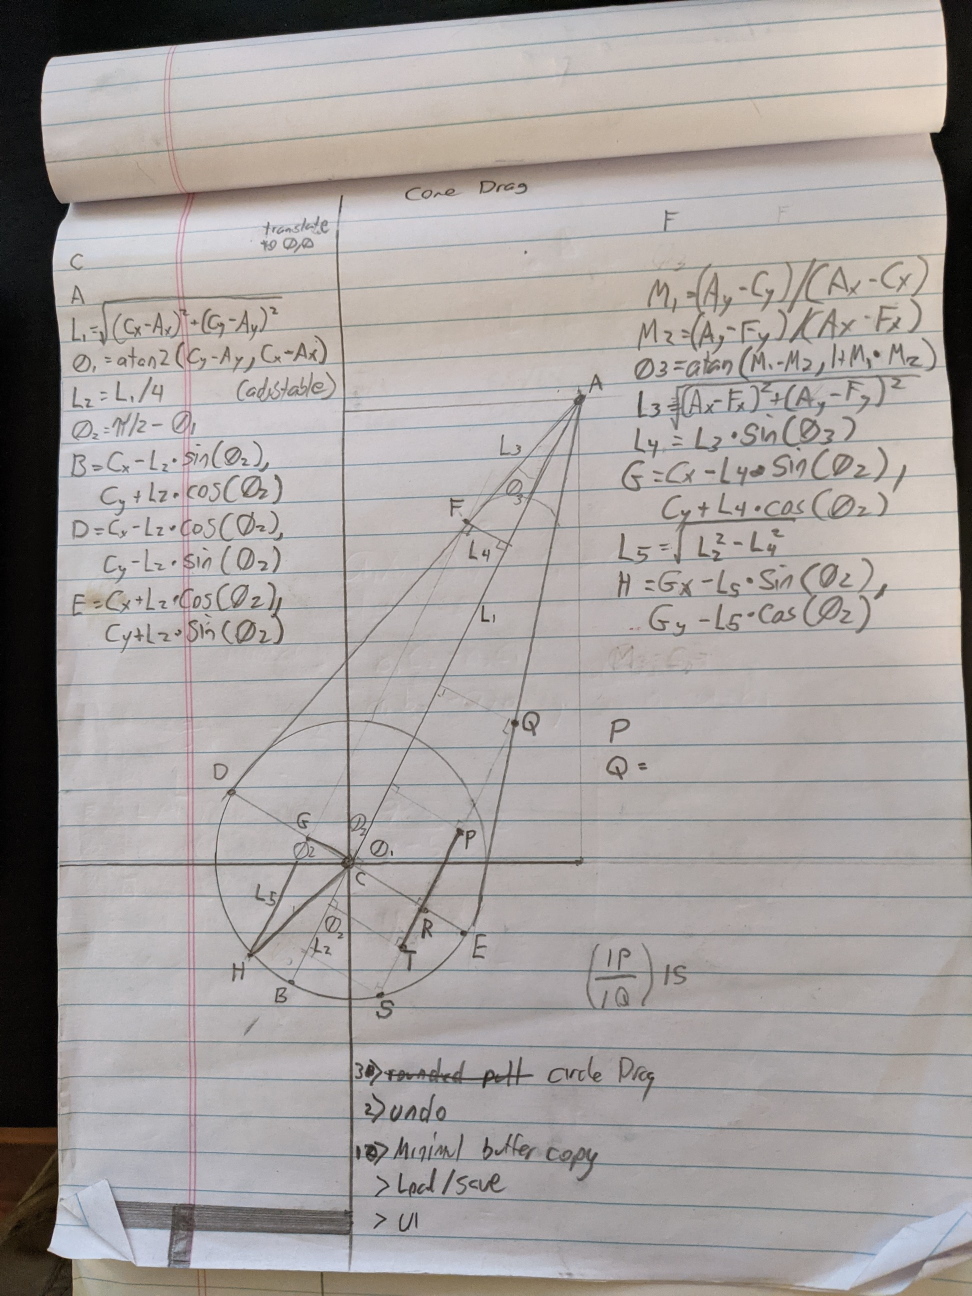 Cone Drag
translate
to 0,0
C
A
L₁=√(Cx-Ax)²+(Cy-Ay)²
Θ₁=atan2(Cy-Ay, Cx-Ax)
L₂=L₁/4 (adjustable)
Θ₂=π/2-Θ₁
B=Cx-L₂·sin(Θ₂),
Cy+L₂·cos(Θ₂)
D=Cx-L₂·cos(Θ₂),
Cy-L₂·sin(Θ₂)
E=Cx+L₂·cos(Θ₂),
Cy+L₂·sin(Θ₂)
F
M₁=(Ay-Cy)/(Ax-Cx)
M₂=(Ay-Fy)/(Ax-Fx)
Θ3=atan(M₁-M₂, 1+M₁·M₂)
L₃=√(Ax-Fx)²+(Ay-Fy)²
L₄=L₃·sin(Θ₃)
G=Cx-L₄·sin(Θ₂),
Cy+L₄·cos(Θ₂)
L₅=√L₂²-L₄²
H=Gx-L₅·sin(Θ₂),
Gy-L₅·cos(Θ₂)
P
Q=
A
L₃
Θ₃
F
L₄
L₁
Q
D
G
Θ₂
Θ₁
P
C
L₅
Θ₂
R
L₂
T
E
H
B
S
(1P/1Q) 1S
3>rounded putt circle Drag
2>undo
1>Miniml buffer copy
>Load/save
>UI